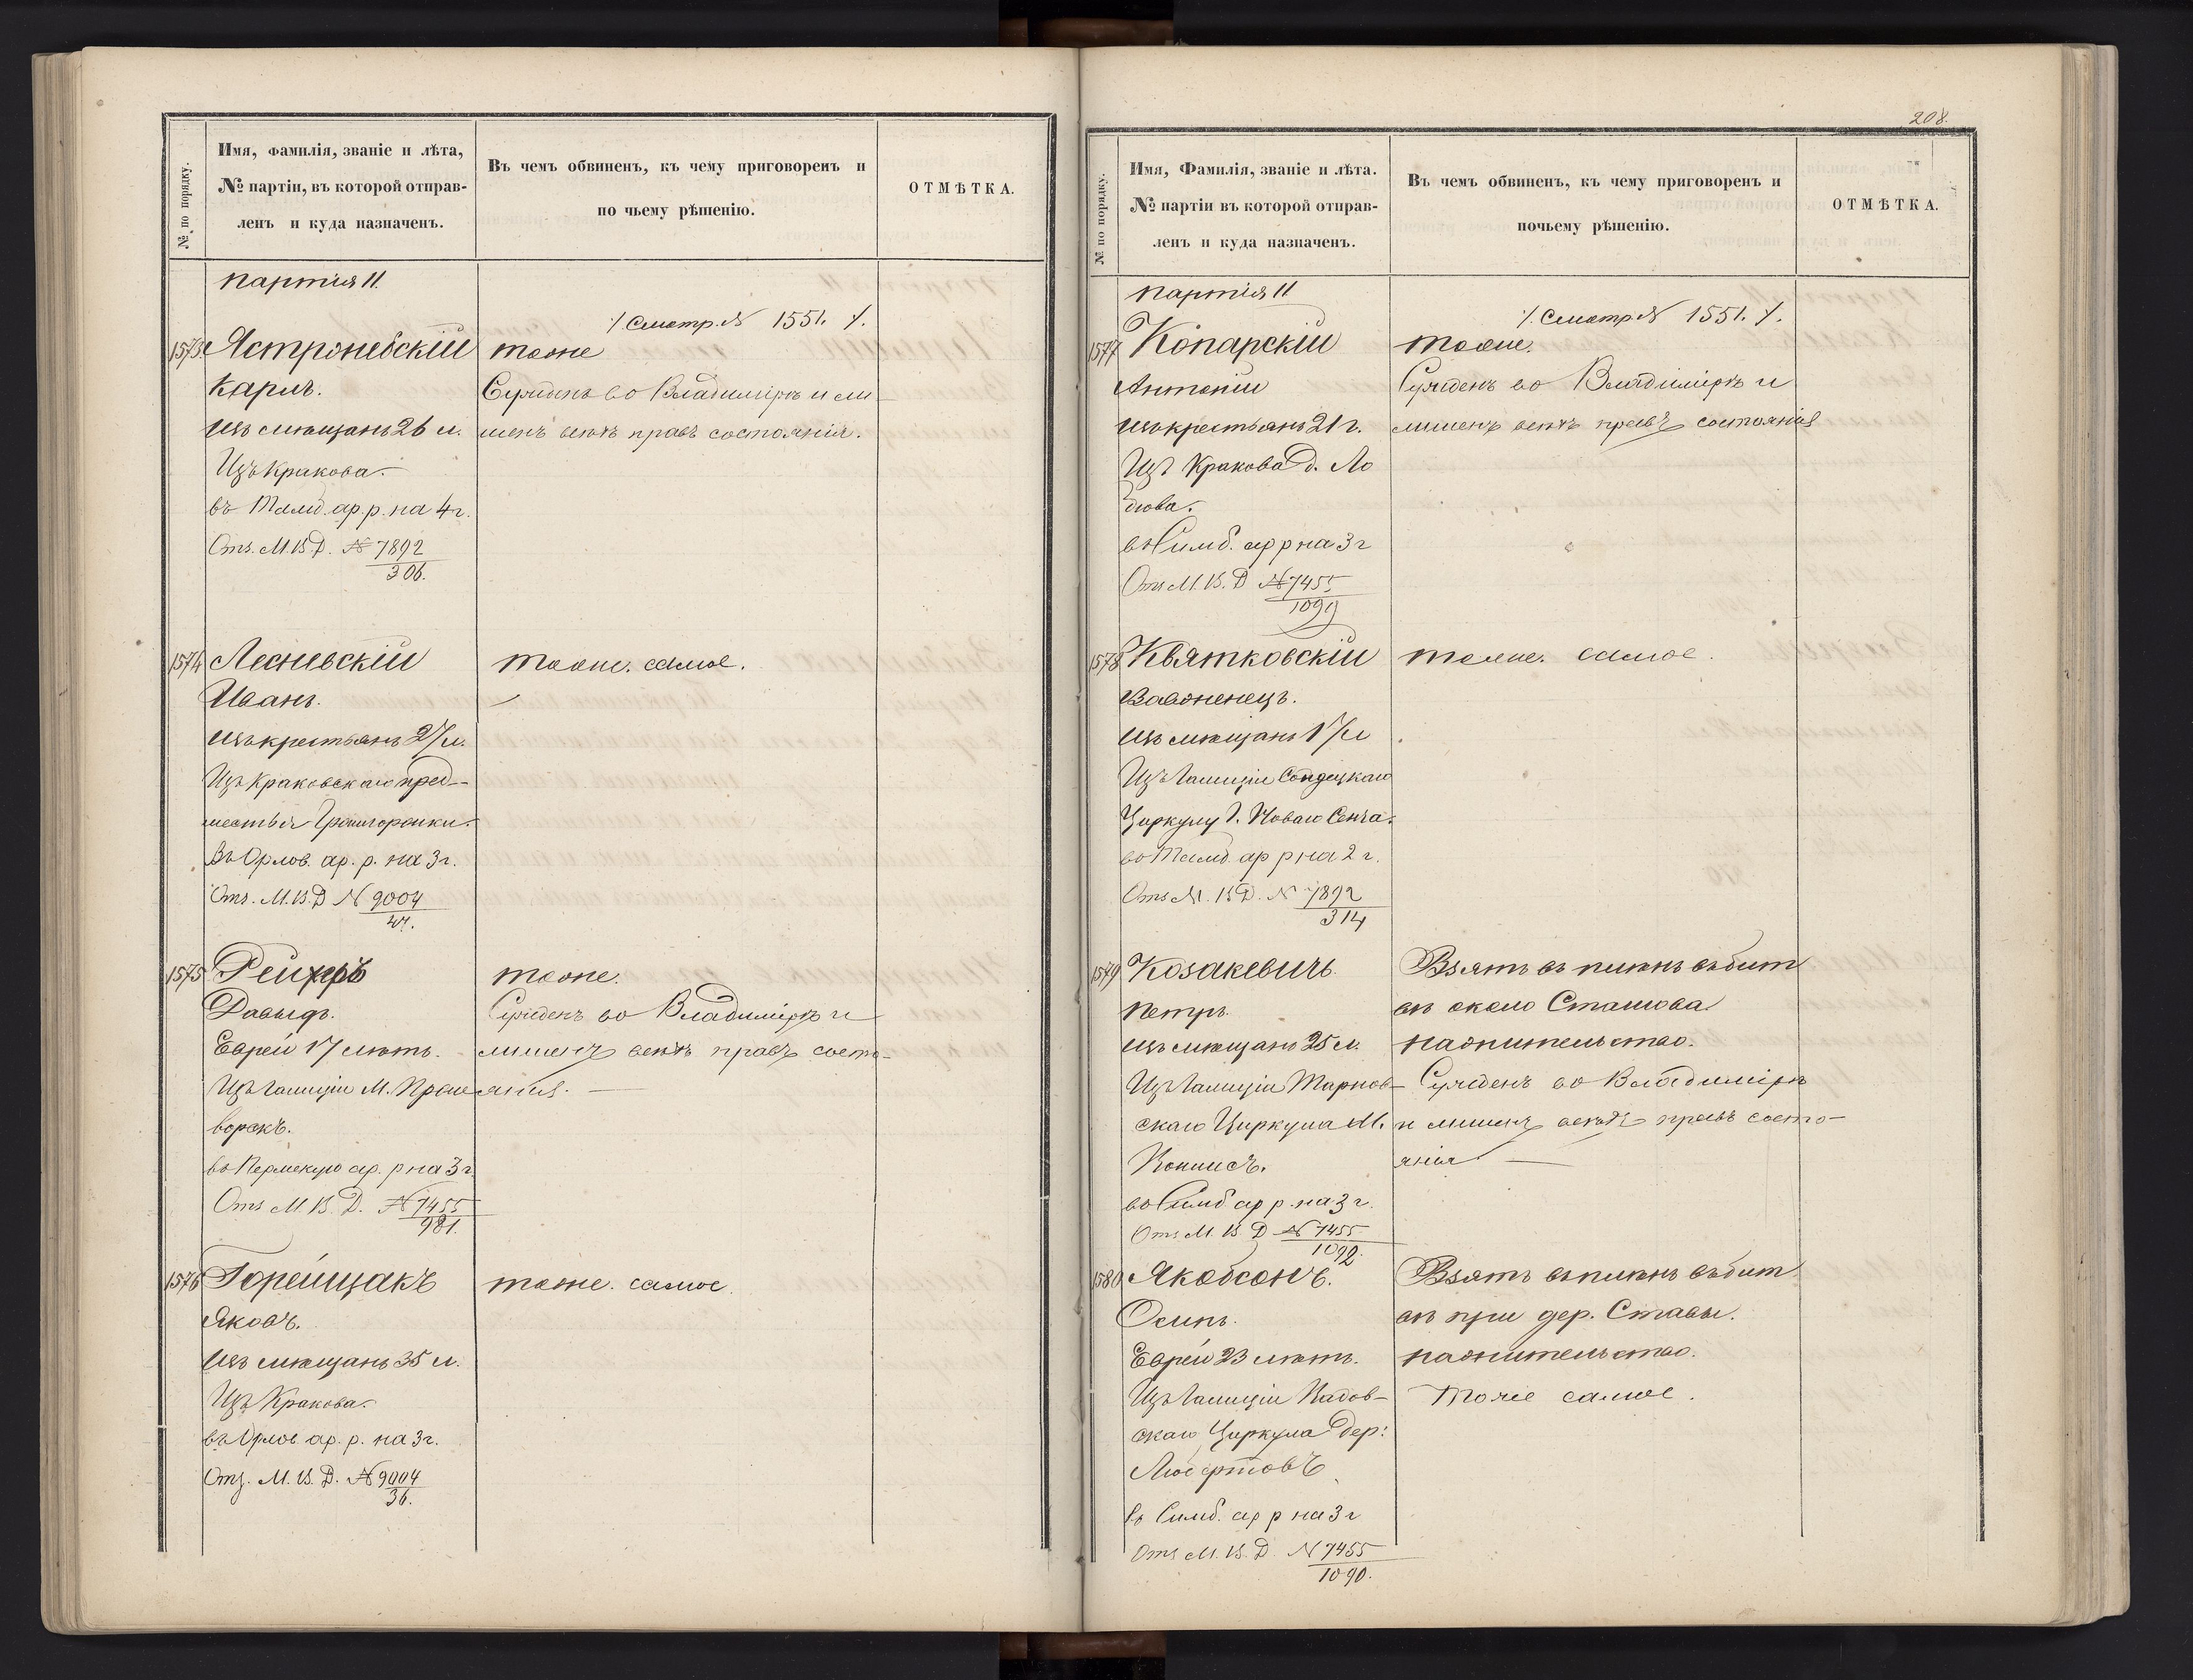 № по порядку.
Имя, фамилія, званіе и лѣта,
№ партіи, въ которой отправ-
ленъ и куда назначенъ.
Въ чемъ обвиненъ, къ чему приговоренъ и
по чьему рѣшенію.
ОТМѢТКА.
партія 11.
1573
Ястроневскій
Карлъ.
изъ мѣщанъ 26 л.
Изъ Кракова.
въ Тамб. ар. р. на 4 г.
Отз. М. В. Д. № 7892
306.
./. Смотр. № 1551. ./.
тоже
Сужденъ во Владимірѣ и ли-
шенъ всѣхъ правъ состоянія.
1574
Лесневскій
Иванъ.
изъ крестьянъ 27 л.
Изъ Краковскаго пред-
мѣстья
въ Орлов. ар. р. на 3 г.
Отз. М. В. Д № 9004
47.
тоже. самое.
1575
Давыдъ.
Еврей 17 лѣтъ.
Изъ Галиціи М. Пржe-
ворскъ.
въ Пермскую ар. р на 3 г
Отз М. В. Д. № 7455
981.
тоже.
Сужденъ во Владимірѣ и
лишенъ всѣхъ правъ состо-
янія.
1576
Горейщакъ
Яковъ.
изъ мѣщанъ 35 л.
Изъ Кракова.
въ Орлов. ар. р. на 3 г.
Отз. М. В. Д. № 9004
36.
тоже. самое.
208.
№ по порядку.
Имя, Фамилія, званіе и лѣта.
№ партіи въ которой отправ-
ленъ и куда назначенъ.
Въ чемъ обвиненъ, къ чему приговоренъ и
почьему рѣшенію.
ОТМѢТКА.
партія 11
1577
Копарскій
Антоній
изъ крестьянъ 21 г.
Изъ Кракова д. Ло
бзова.
въ Симб. ар р на 3 г
Отз М. В. Д № 7455
1099
./. Смотр № 1551. ./.
тоже.
Сужденъ во Владимірѣ и
лишенъ всѣхъ правъ состоянія
1578
Квятковскій
Вавженецъ.
изъ мѣщанъ 17 л
Изъ Галиціи Сондецкаго
Циркулу г. Новаго Сенча.
въ Тамб. ар р на 2 г.
Отз М. В Д. № 7892
314
тоже. самое.
1579
Козакевичъ.
Петръ.
изъ мѣщанъ 25 л.
Изъ Галиціи Тарнов-
скаго Циркула М.
въ Симб ар р. на 3 г.
Отз М. В Д № 7455
1092.
Взятъ въ плѣнъ въ бит
вѣ около Сташова
на жительство.
Сужденъ во Владимірѣ
и лишенъ всѣхъ правъ состо-
янія
1580
Якобсонъ.
Осипъ.
Еврей 23 лѣтъ.
Изъ Галиціи Вадов-
скаго Циркула дер:
въ Симб. ар р на 3 г
Отз М. В. Д № 7455
1090.
Взятъ въ плѣнъ въ бит
вѣ при дер. Ставы.
на жительство.
Тоже самое.